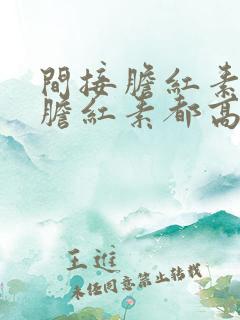 間接膽紅素
膽紅素都高
王進
未经同意禁止转载